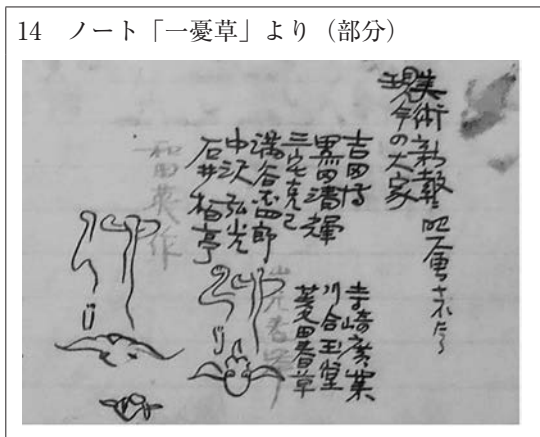 14　ノート「一憂草」より（部分）
美術新報
現今の大家
吉田博
黒田清輝
三宅克己
満谷国四郎
中沢弘光
石井柏亭
和田英作
寺崎廣業
川合玉堂
菱田春草